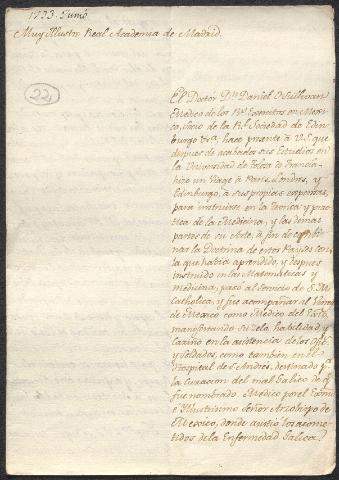 1793. Junio
Muy Illustre Real Academia de Madrid.
22
El Doctor Dn Daniel O Sullivan
Medico de los Rs Exercitos en Mexi-
co, Socio de la Rl Sociedad de Edin-
burgo &a; hace presente á V.S. que
despues de acabados sus Estudios en
la Universidad de Tolosa de Francia
hizo un Viage á Paris, Londres, y
Edinburgo, á sus propias expensas,
para instruirse en la Teorica y prac-
tica de la Medicina, y las demas
partes de su Arte, á fin de combi-
nar la Doctrina de estos Payses con
la que habia aprendido, y despues
instruido en las Matematicas y
Medicina, pasó al servicio de S. M.
Catholica, y fue acompañar al Virrey
de Mexico como Medico del Exto
manifestando su zelo habilidad y
Cariño en la asistencia de los Ofs
y Soldados, como tambien en el
Hospital de Sn Andres, destinado pa
la Curacion del mal Galico de q
fue nombrado Medico por el Exmo
é Illustrisimo Señor Arzobispo de
Mexico, donde asistió los acome-
tidos de la Enfermedad Galica.